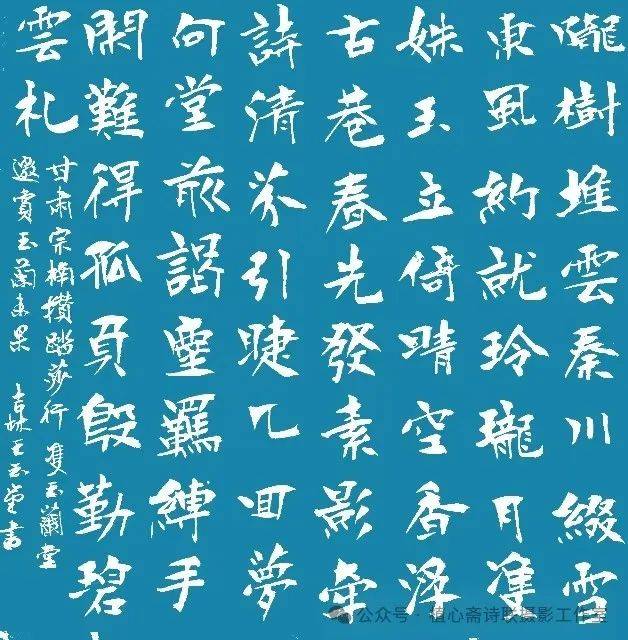 隴樹堆雲秦川綴雪
東風約就玲瓏月雙
姝玉立倚晴空香浮
古巷春先發素影牽
詩清芬引睫几回夢
向堂前謁塵羈縛手
閑難得孤負殷勤碧
雲札
甘肅宗楠攢踏莎行 雙玉蘭堂
邀賞玉蘭未果 吉林王玉堂書
公众号·植心斋诗联摄影工作室